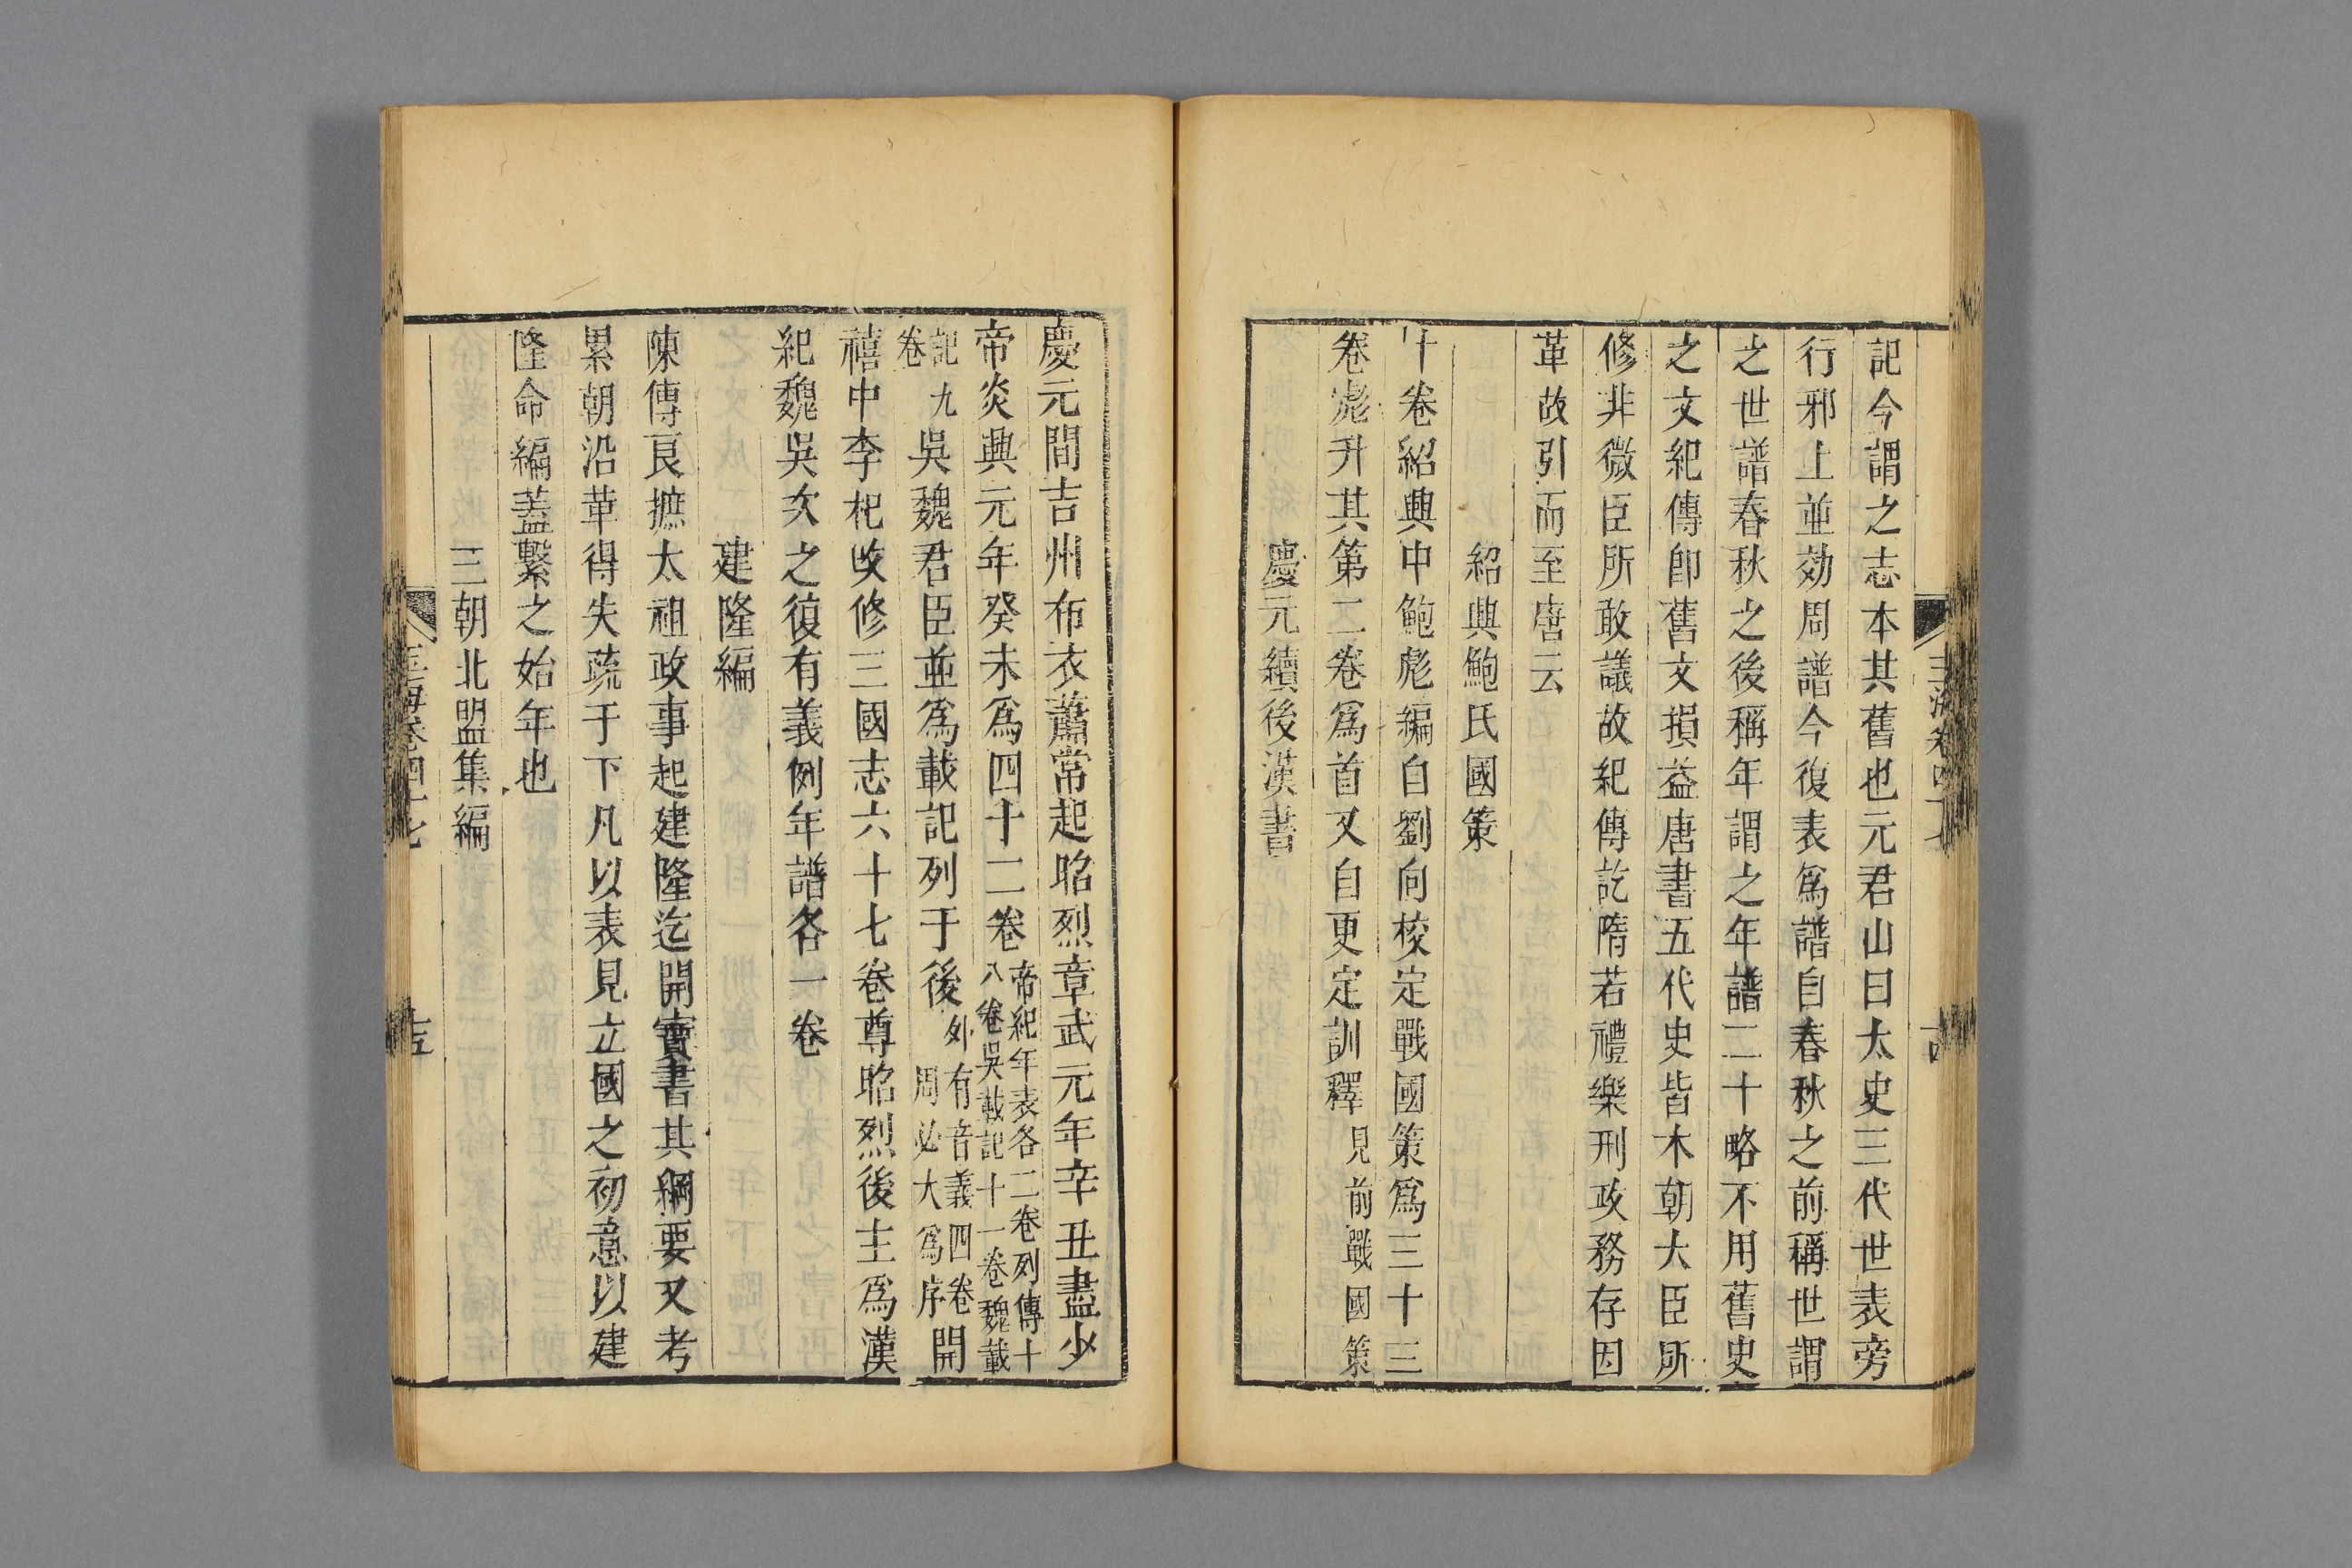 記今謂之志本其舊也元君山曰太史三代世表旁
行邪上並効周譜今復表爲譜自春秋之前稱世謂
之世譜春秋之後稱年謂之年譜二十略不用舊史
之文紀傳卽舊文損益唐書五代史皆木朝大臣所
修非微臣所敢議故紀傳訖隋若禮樂刑政務存因
革故引而至唐云
紹興鮑氏國策
十卷紹興中鮑彪編自劉向校定戰國策爲三十三
卷彪升其第二卷爲首又自更定訓釋見前戰國策
慶元續後漢書
慶元間吉州布衣蕭常起昭烈章武元年辛丑盡少
帝炎興元年癸未爲四十二卷帝紀年表各二卷列傳十
八卷吳載記十一卷魏載
記九
卷吳魏君臣並爲載記列于後外有音義四卷
周必大爲序開
禧中李杞改修三國志六十七卷尊昭烈後主爲漢
紀魏吳次之復有義例年譜各一卷
建隆編
陳傅良摭太祖政事起建隆迄開寶書其綱要又考
累朝沿革得失疏于下凡以表見立國之初意以建
隆命編蓋繫之始年也
三朝北盟集編
玉海卷四十七
十五